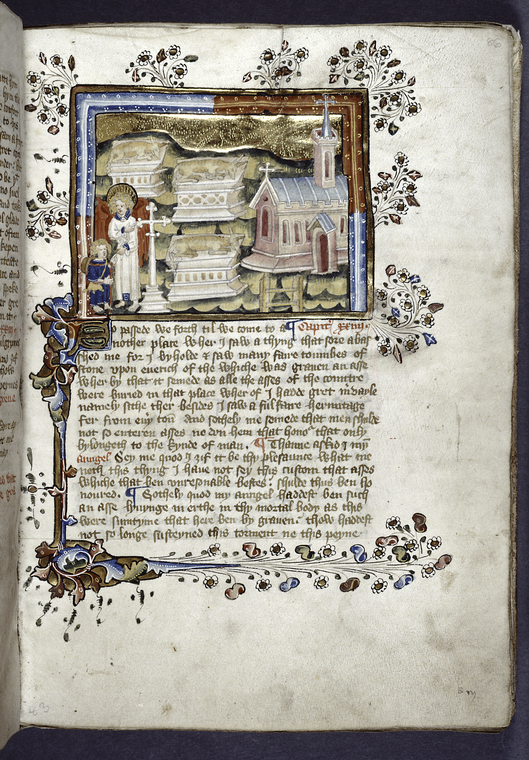 O passede we forth til we come to a Capitulum
nother place wher I saw a thyng that sore abas
shed me for I byholde & saw many faire toumbes of
stone vpon euerich of the whiche was grauen an asse
Wher by that it semede as alle the asses of the contre
were buried in that place wher of I hadde gret meruayle
namely sithe ther besides I saw a ful faire hermitage
fer from eny ton and sothely me semed that men shulde
not so enteren asses ne don hem that honor that only
bylongeth to the kynde of man. Thanne asked I my
aungel Sey me quod I if it be thy plesaunce what me
neth this thyng I haue not sey this custom that asses
whiche that ben vnresonable bestes shulde thus ben ho
noured. Sothely quod myn aungel haddest ben such
an asse lyuynge in erthe in thy mortal body as this
were sumtyme that here ben by grauen. thow haddest
not so longe susteyned this torment ne this peyne